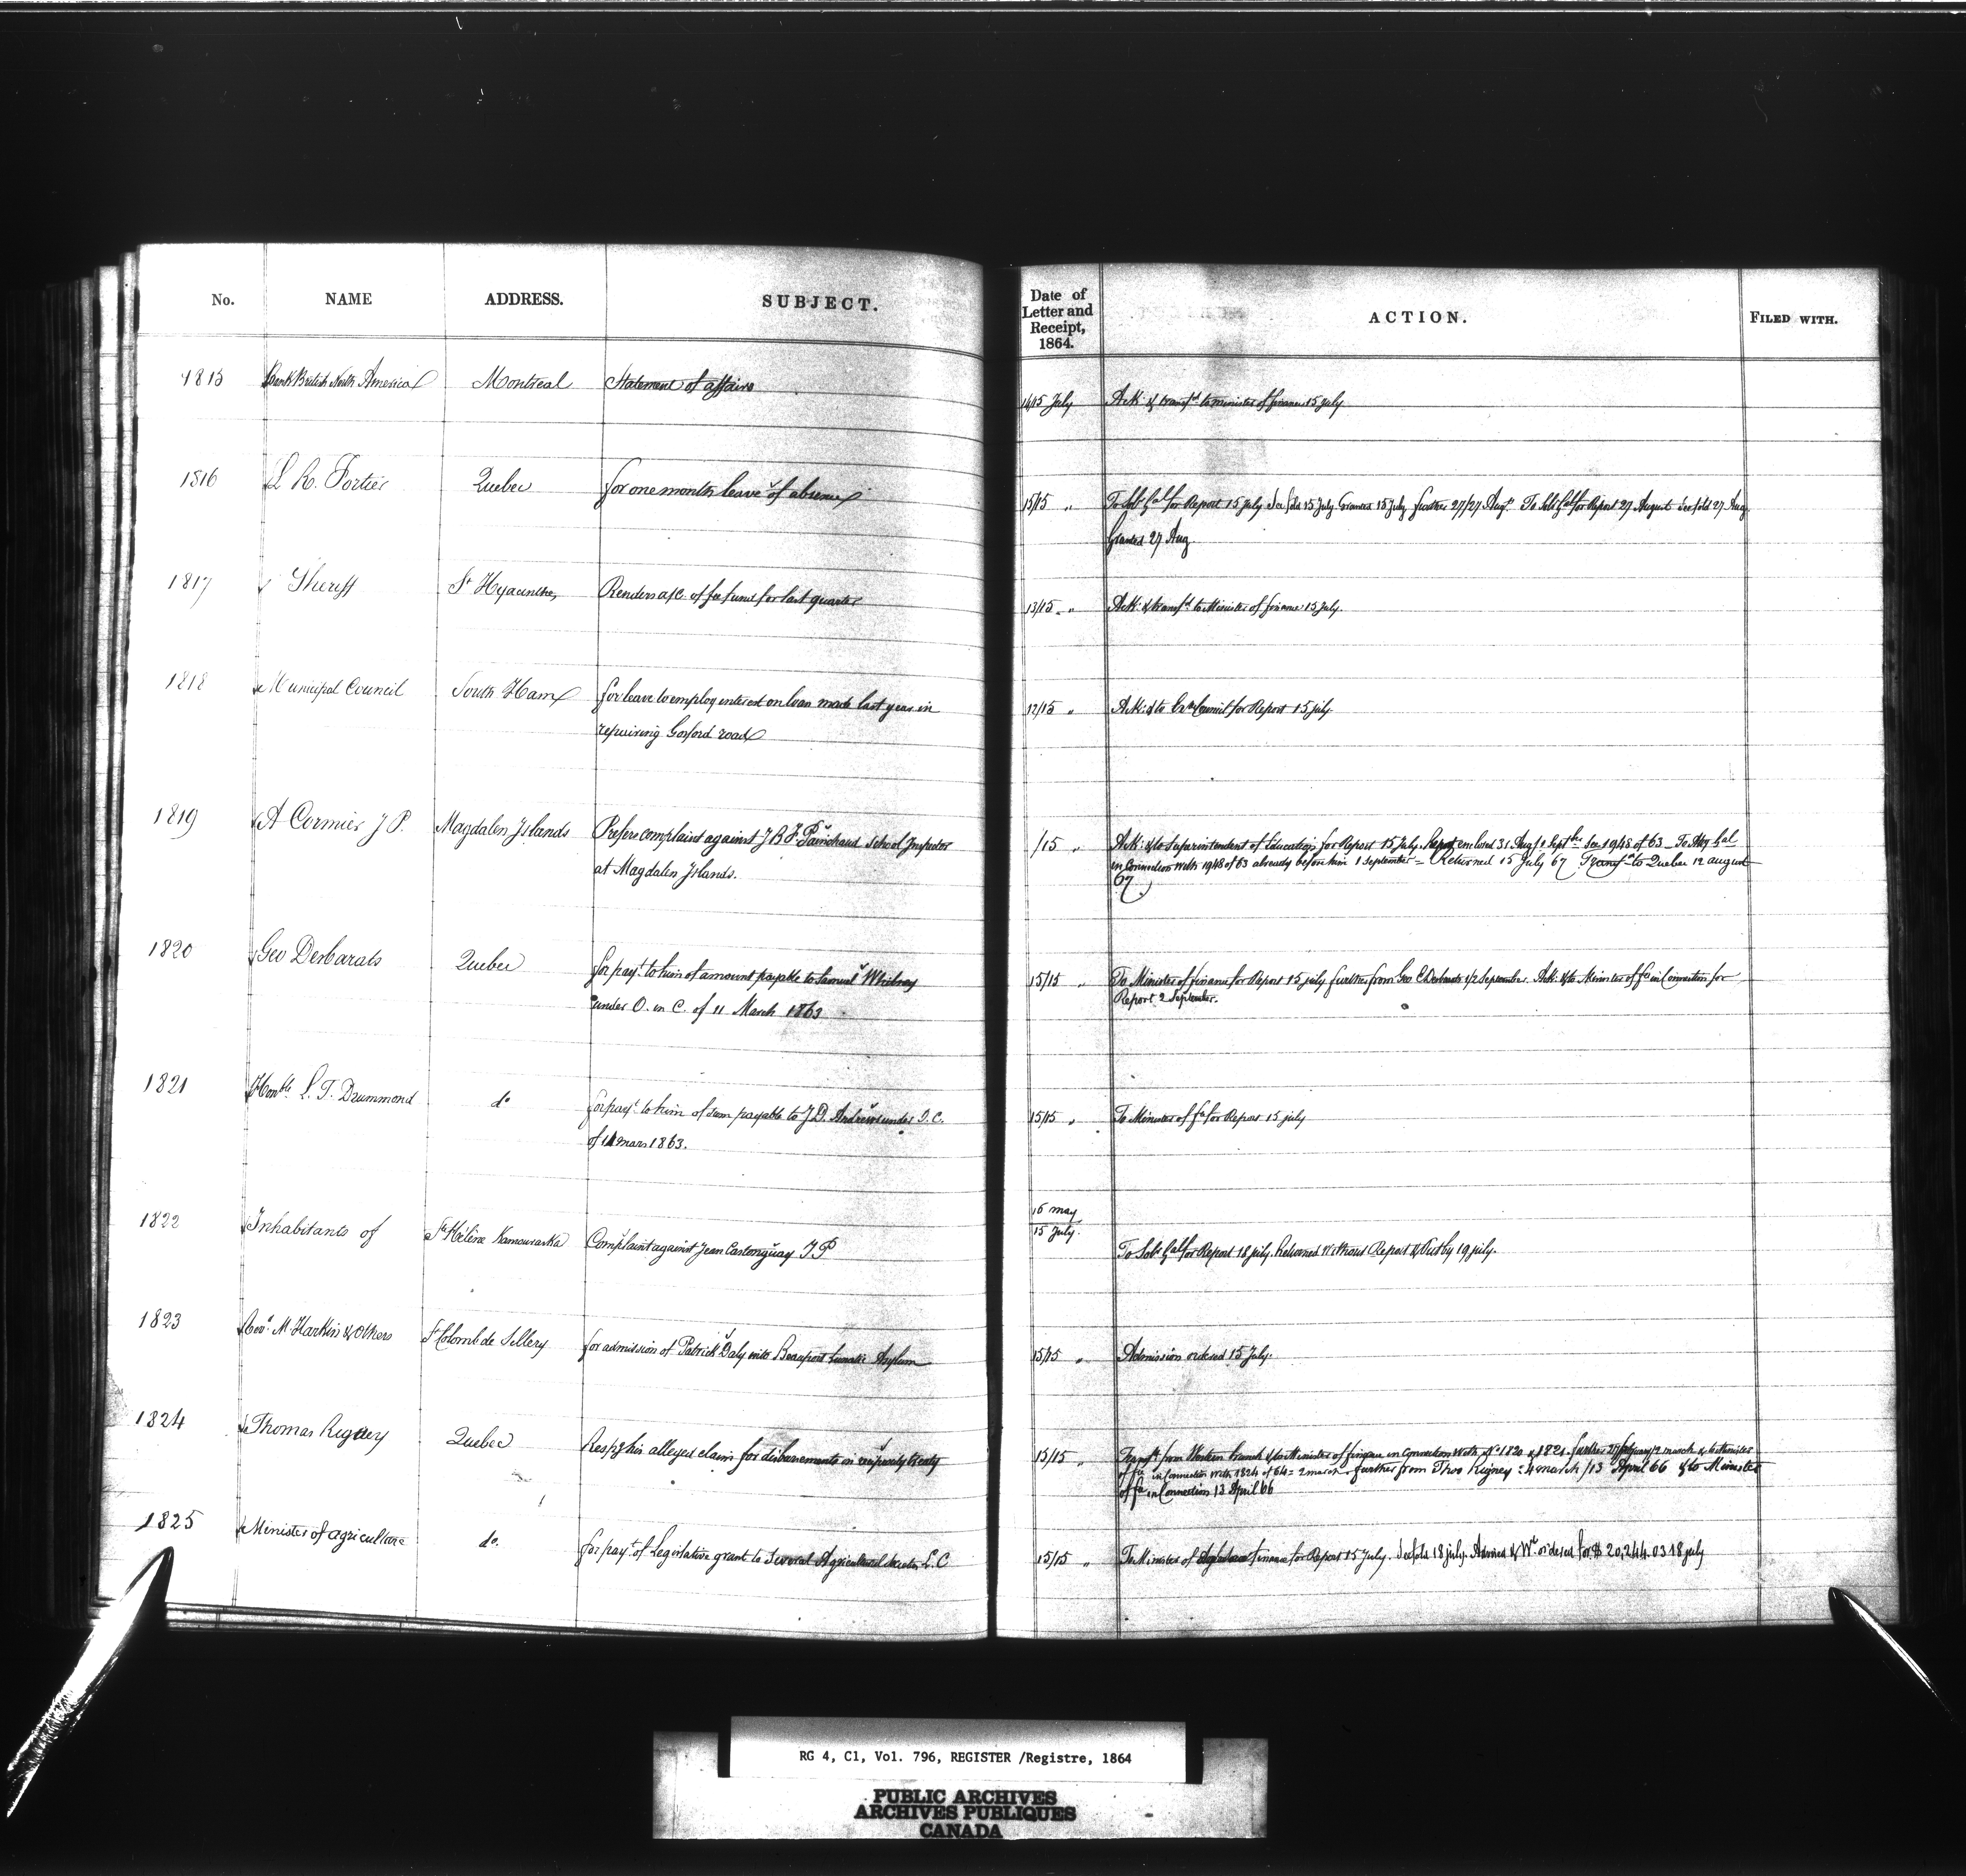 No. NAME ADDRESS. SUBJECT.
Date of Letter and Receipt, 1864. ACTION. FILED WITH.
1815 Bank British North America Montreal Statement of affairs
14/15 July Ack: & transfd to minister of finance 15 july
1816 L R. Fortier Quebec for one months leave of absence
15/15 " To Solr Gal for Report 15 july See fold 15 July Granted 15 july further 27/27 Augt. To Solr Gal for Report 27 August See fold 27 Aug
Granted 27 Aug.
1817 Sheriff St Hyacinthe, Renders a/c of fee fund for last quarter
13/15 " Ack: & transfd to Minister of finance 15 july.
1818 Municipal Council South Ham for leave to employ interest on loan made last year in
repairing Gosford road
12/15 " Ack: & to Exe Council for Report 15 july.
1819 A Cormier J P. Magdalen Islands Prefers complaint against J B F. Painchaud School Inspector
at Magdalen Islands.
/15 " Ack: & to Superintendent of Education for Report 15 July. Report enclosed 31 Aug/1 Septber See 1948 of 63 _ To Atty Gal
in Connection with 1948 of 63 already before him 1 September – Returned 15 July 67 Transfd to Quebec 12 august
67
1820 Geo Desbarats Quebec for payt. to him of amount payable to Samuel Whitney
under O. in C. of 11 March 1863
15/15 " To Minister of finance for Report 15 july further from Geo E Desbarats 1/2 September. Ack: & to Minister of fce in Connection for
Report 2 September.
1821 Honble L. T. Drummond do for payt. to him of sum payable to J D. Andrews under O. C.
of 11 mars 1863.
15/15 " To Minister of fce for Report 15 july
1822 Inhabitants of Ste Hélène Kamouraska Complaint against Jean Castonguay J P
16 may
15 July. To Solr Gal for Report 18 july. Returned without Report & Put by 19 july.
1823 Revd. M. Harkin & Others St Colomb de Sillery for admission of Patrick Daly into Beauport Lunatic Asylum
15/15 " Admission ordered 15 July.
1824 Thomas Rigney Quebec Respg his alleged claim for disbursements in reciprocity treaty
15/15 " Transfd from Western branch & to Minister of finance in Connection with No 1820 & 1821. further 27 february/2 march & to Minister
of fce in Connection with 1824 of 64 = 2 march. further from Thos Rigney = 4 march /13 April 66 & to Minister
of fce in Connection 13 April 66
1825 Minister of agriculture do. for payt. of Legislative grant to Several Agricultural Societies L. C
15/15 " To Minister of finance for Report 15 July. See fold 18 july. Advised & Wt ordered for $ 20,244.03 18 july
RG 4, C1, Vol. 796, REGISTER /Registre, 1864
PUBLIC ARCHIVES
ARCHIVES PUBLIQUES
CANADA